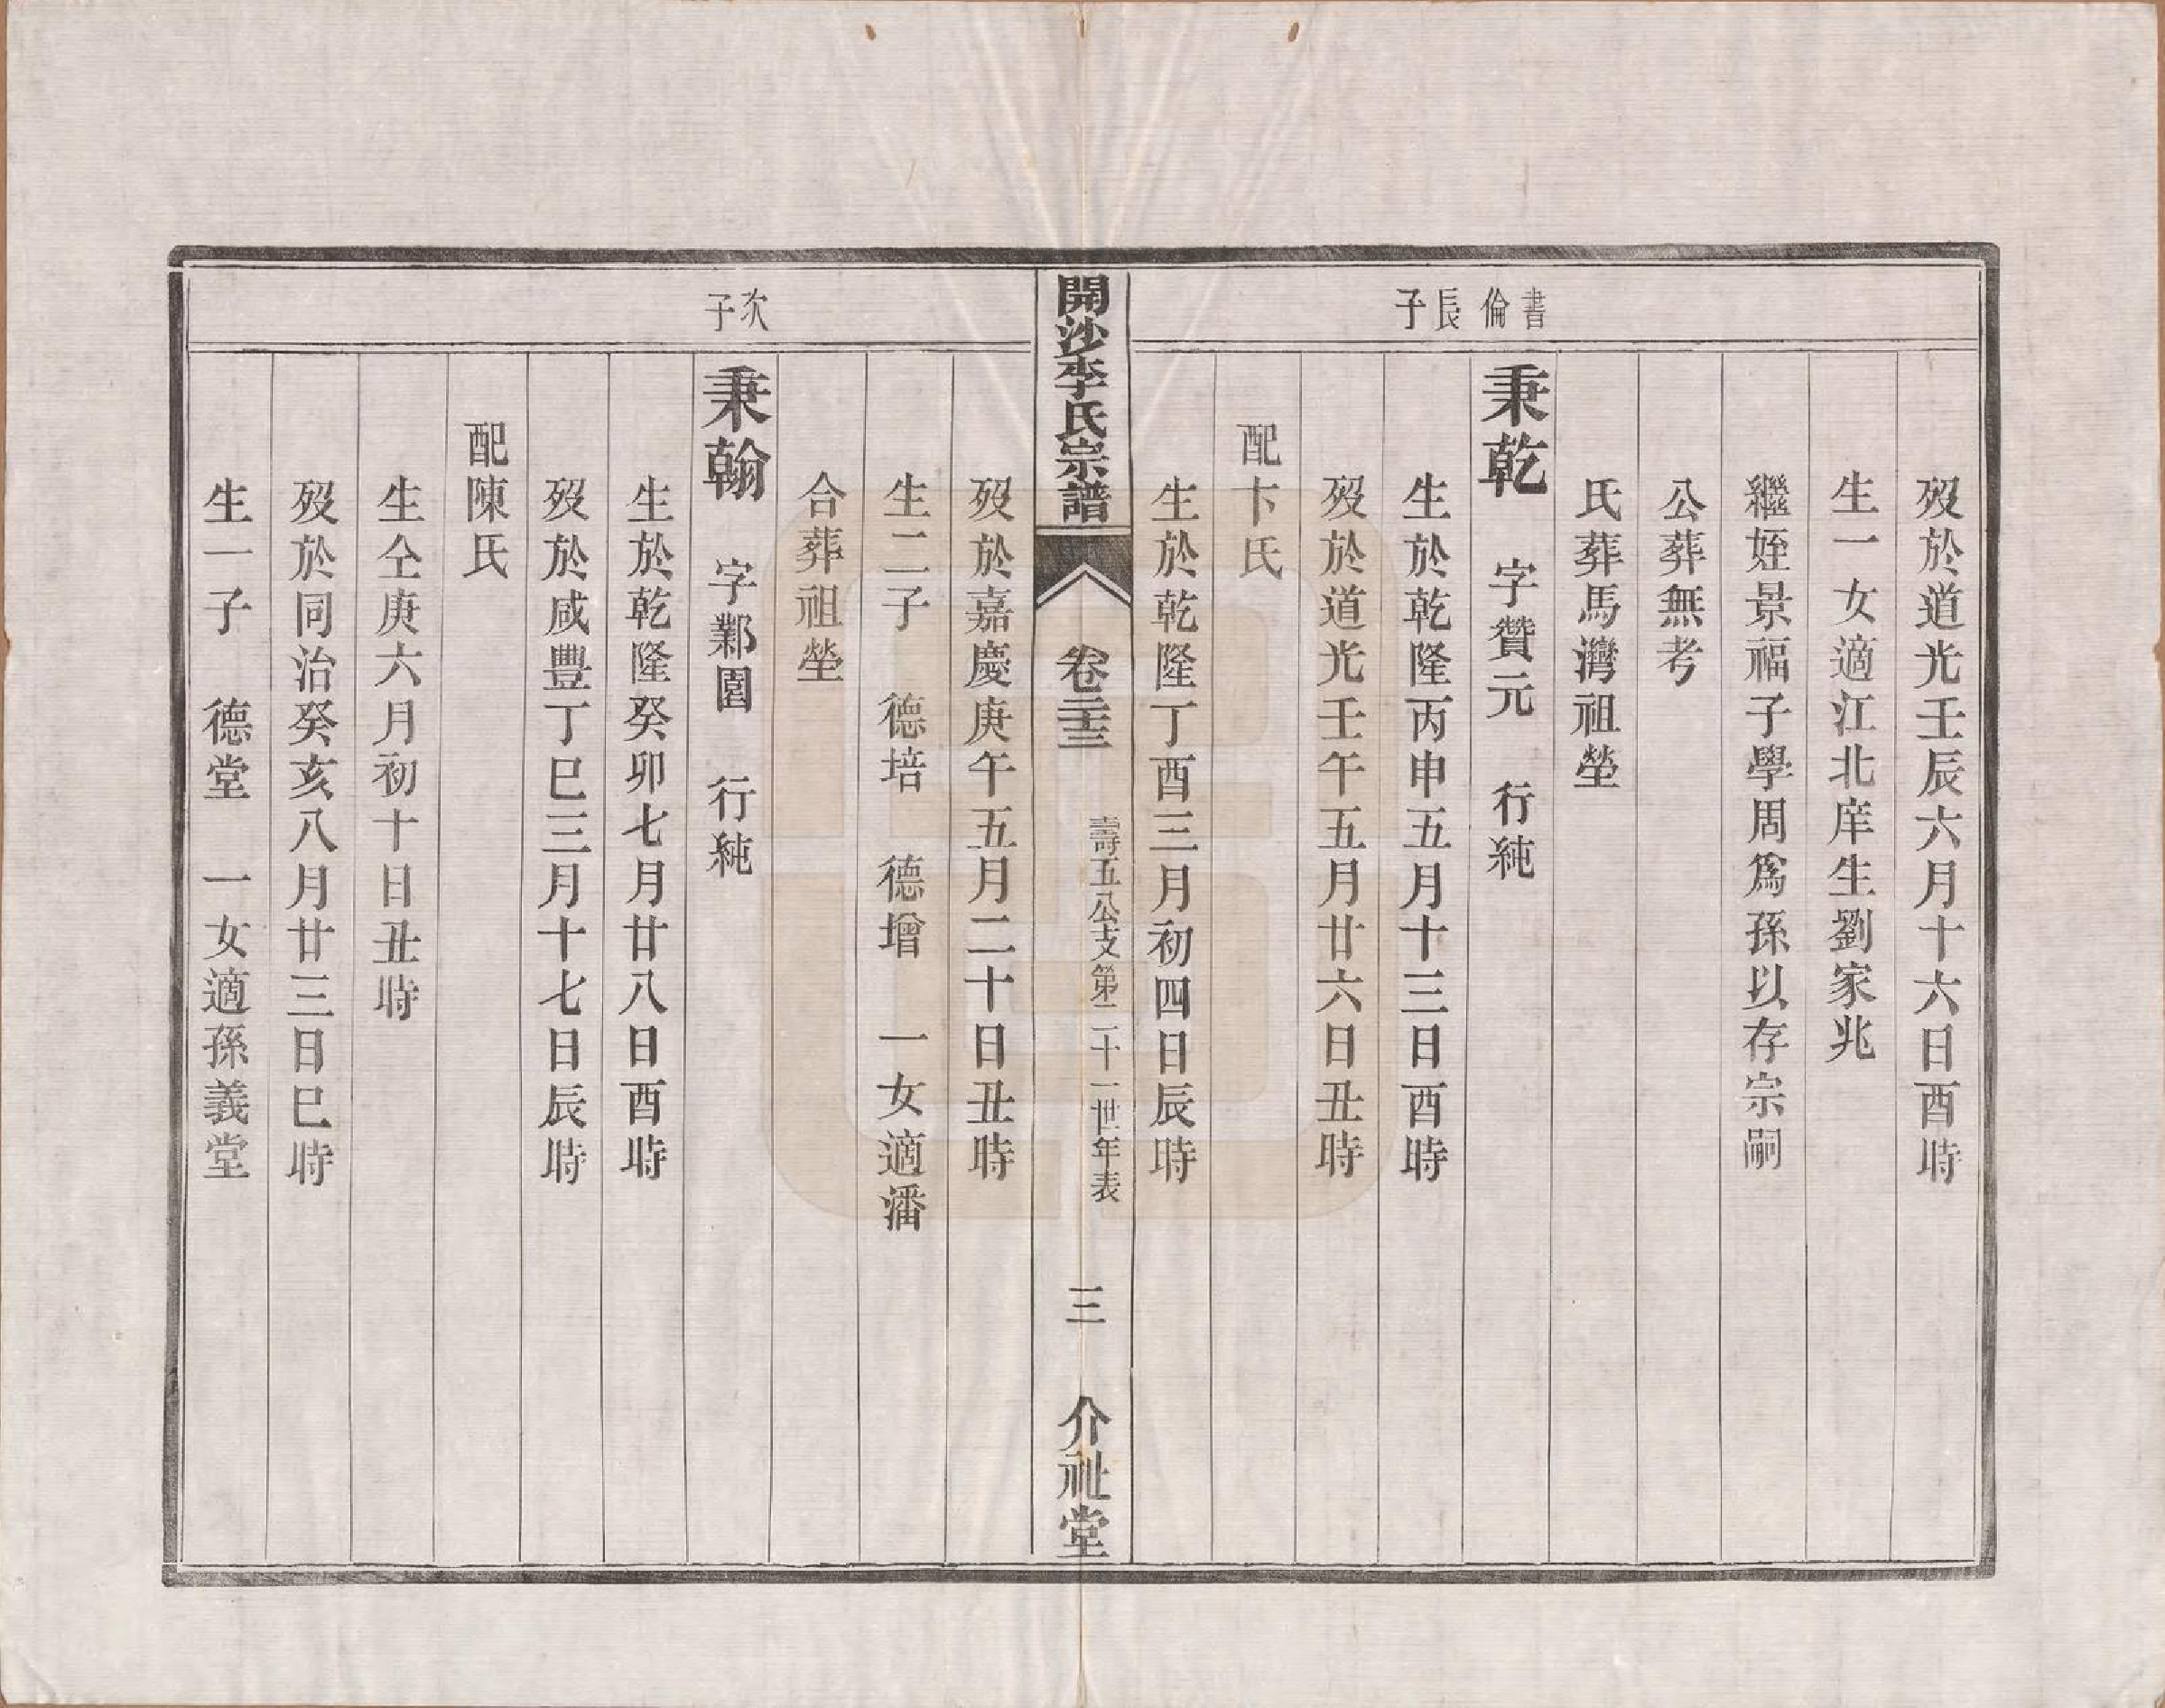 歿於道光壬辰六月十六日酉時
生一女適江北庠生劉家兆
繼姪景福子學周爲孫以存宗嗣
公葬無考
氏葬馬灣祖塋
書倫長子
秉乾 字贊元 行純
生於乾隆丙申五月十三日酉時
歿於道光壬午五月廿六日丑時
配卞氏
生於乾隆丁酉三月初四日辰時
開沙李氏宗譜 卷二十三 壽五公支第二十一世年表 三 介祉堂
歿於嘉慶庚午五月二十日丑時
生二子 德培 德增 一女適潘
合葬祖塋
次子
秉翰 字鄴園 行純
生於乾隆癸卯七月廿八日酉時
歿於咸豐丁巳三月十七日辰時
配陳氏
生仝庚六月初十日丑時
歿於同治癸亥八月廿三日巳時
生一子 德堂 一女適孫義堂